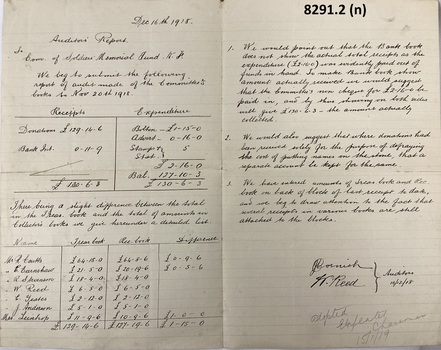 8291.2 (n)
Dec 16th 1918.
Auditors' Report.
To
Com. of Soldiers' Memorial Fund
We beg to submit the following
report of audit made of the Committee's
books to Nov 20th 1918.
Receipts Expenditure
Donations £ 129-14-6 £1-15-0
Bank Int. 0-11-9 Advert. 0-16-0
Stamps & 5
Stat.
2-16-0
Bal. 127-10-3
£ 130-6-3 £ 130-6-3
There being a slight difference between the total
in the Treas. book and the total of amounts in
Collectors' books we give hereunder a detailed list
Name Treas. book Rec. book Difference
£64-15-0 £64-5-6 £0-9-6
E Earnshaw £21-5-0 £20-19-6 £0-5-6
W. Reed £6-5-0 £6-5-0
£2-12-0 £2-12-0
J. Anderson £5-1-0 £5-1-0
£11-9-6 £10-9-6 £1-0-0
£129-14-6 £127-19-6 £1-15-0
1. We would point out that the Bank book
does not show the actual total receipts as the
expenditure (£2-16-0) was evidently paid out of
funds in hand. To make Bank book show
amount actually received we would suggest
that the Committee's own cheque for £2-16-0 be
paid in, and by thus showing on both sides
will give £130-6-3 - the amount actually
collected.
2. We would also suggest that where donations had
been received solely for the purpose of defraying
the cost of putting names on the stone, that a
separate account be kept for the same.
3. We have ruled amounts of Treas book and
book on back of block of last receipts to date,
and we beg to draw attention to the fact that
several receipts in various books are still
attached to the blocks.
Cornish
W. Reed
Auditors
adopted